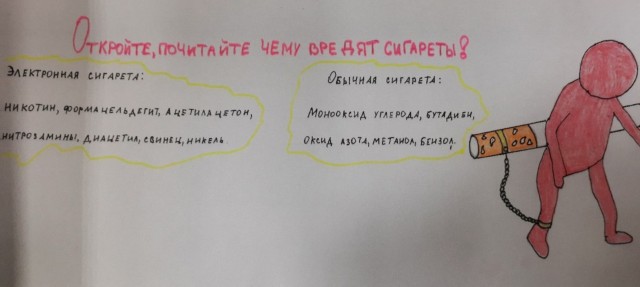 Откройте, почитайте чему вредят сигареты!
Электронная сигарета:
никотин, формацельдегит, ацетилацетон,
нитрозамины, диацетил, свинец, никель.
Обычная сигарета:
Монооксид углерода, бутадиен,
оксид азота, метанол, бензол.